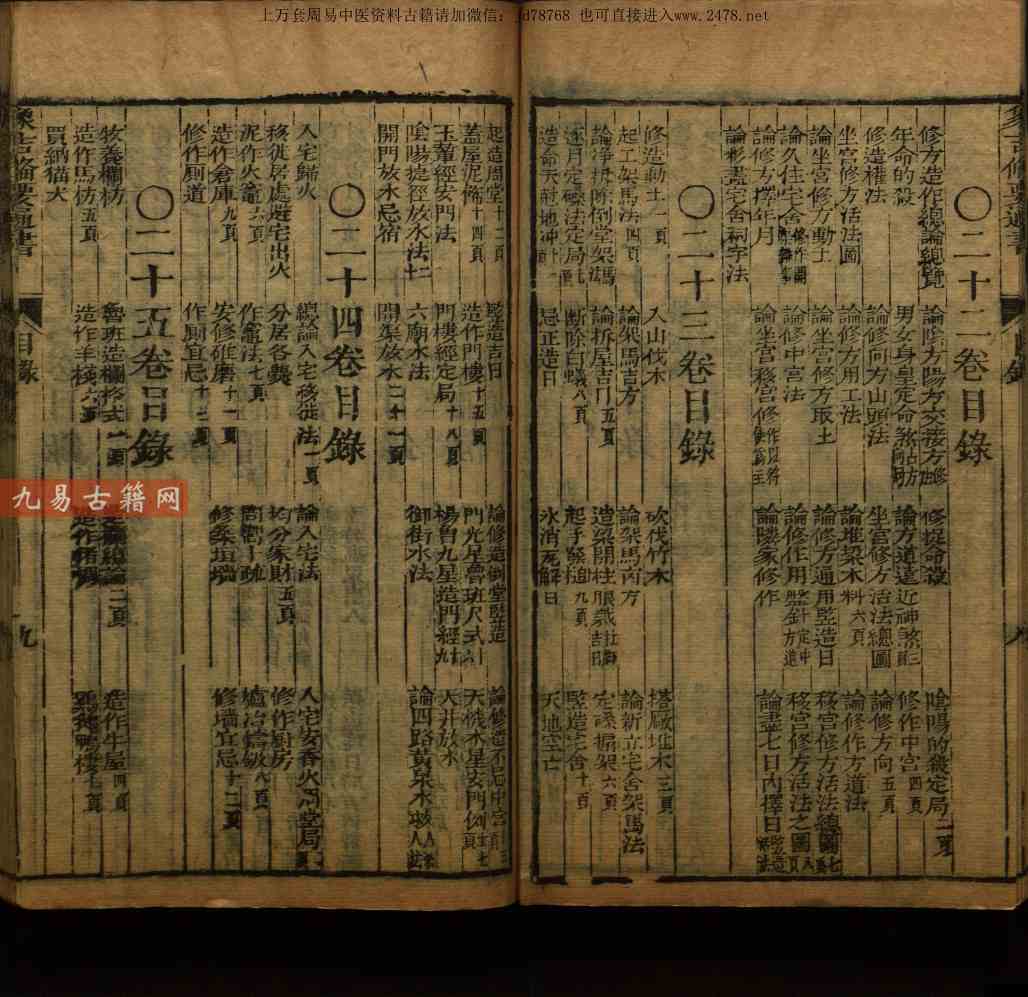 上万套周易中医资料古籍请加微信：jd78768 也可直接进入www.2478.net
〇二十二卷目錄
修方造作總論總覽 論陰方陽方交接方 修捉命殺 陰陽的殺定局 一頁
年命的殺 男女身皇定命煞 論方道遠近神煞 三頁 修作中宮 四頁
修造權法 論修向方山頭法 坐宮修方活法總圖 論修方向 五頁
坐宮修方活法圖 論修方用工法 論堆梁木料 六頁 論修作方道法
論坐宮修方動土 論坐宮修方取土 論修方通用監造日 移宮修方活法總圖
論久住宅舍 論修中宮法 論修作用盤針 移宮修方活法之圖
論修方擇年月 論坐宮移宮修 論隣家修作 論盡七日內擇日
論彬蓋宅舍祠宇法
〇二十三卷目錄
修造動土 一頁 入山伐木 砍伐竹木 搭厰堆木 三頁
起工架馬法 四頁 論架馬吉方 論架馬凶方 論新立宅舍架馬法
論淨拆除倒堂架馬法 論拆屋吉日 五頁 造梁開柱眼 定磉搧架 六頁
逐月定磉法定局 断除白蟻 八頁 起手緊縋 九頁 豎造宅舍 十頁
造命天尅地冲 忌正造日 氷消瓦解日 天地空亡
起造周堂 十二頁 豎造吉日 論修造倒堂豎造 論修造不忌中宮
蓋屋泥僃 十四頁 造作門樓 十五頁 門光星魯班尺式 天機木星安門例
玉輦經安門法 門樓經定局 十八頁 楊曾九星造門經 天井放水
陰陽捷徑放水法 六廟水法 御街水法 論四路黃泉水
開門放水忌宿 開渠放水 二十一
〇二十四卷目錄
入宅歸火 總論入宅移徙法 一頁 論入宅法 入宅安香火周堂局
移徙居處避宅出火 分居各㸑 均分家財 五頁 修作厨房
泥作火竈 六頁 作竈法 七頁 爐冶 八頁
造作倉庫 九頁 安修碓磨 十一頁 修築垣墻 修墻宜忌 十二頁
修作厠道 作厠宜忌 十三頁
〇二十五卷目錄
牧養欄枋 魯班造欄格式 一頁 二頁 造作牛屋 四頁
造作馬枋 五頁 造作羊棧 六頁 雞鵝鴨棲 七頁
買納猫犬
象吉備要通書
目錄
九
九易古籍网